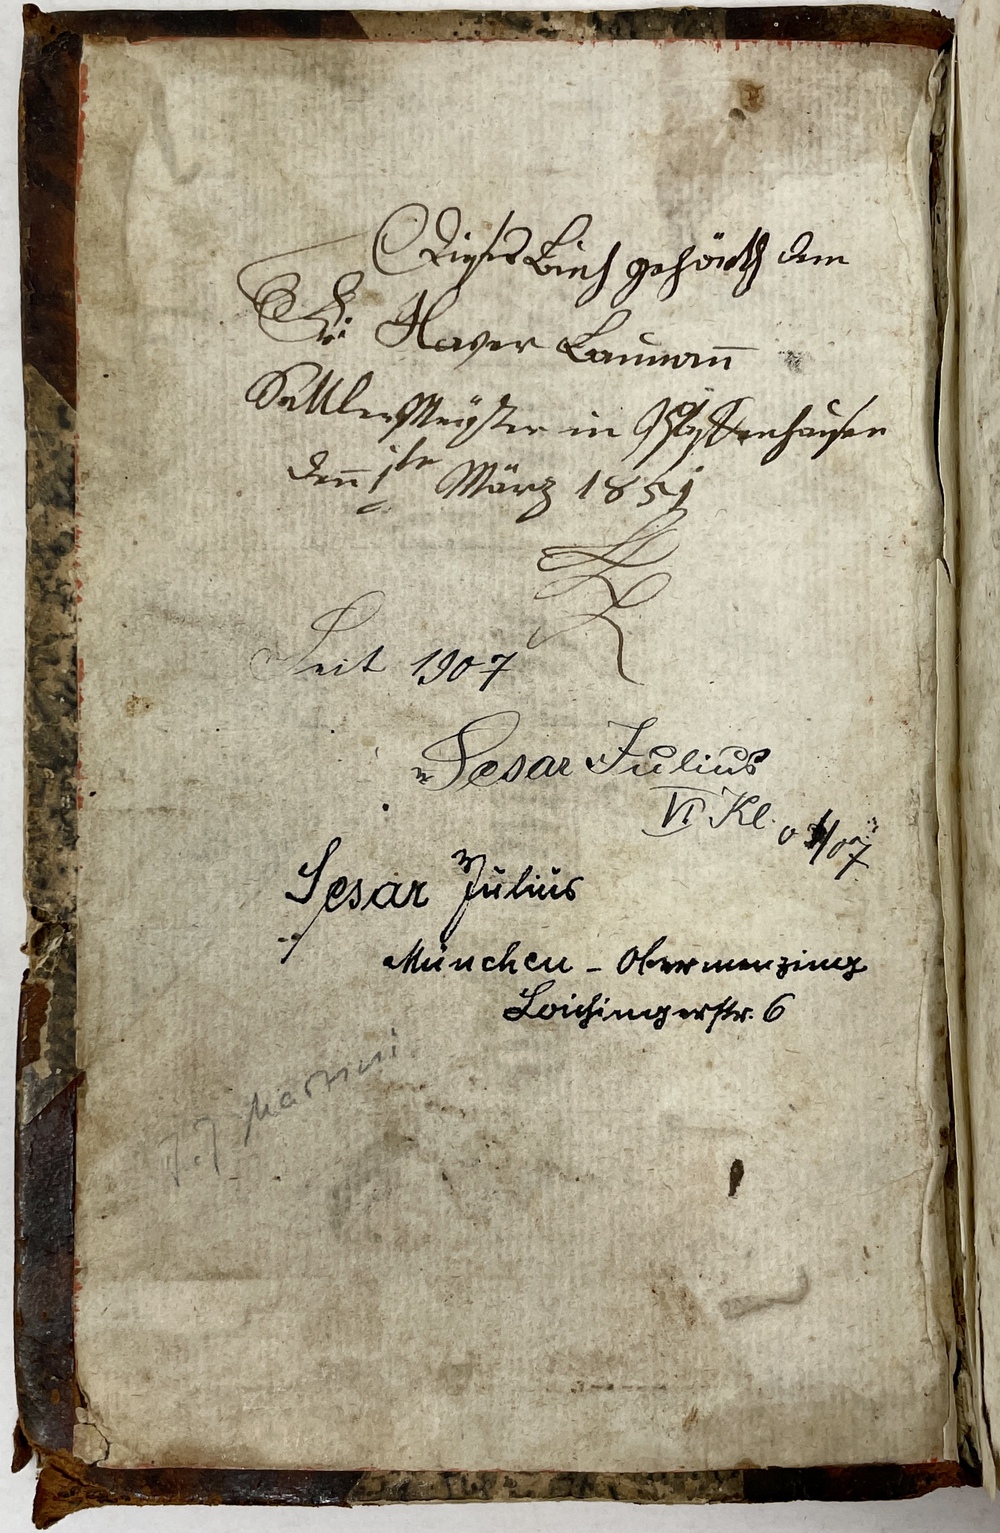 Dieses Buch gehörth dem
Xaver Baumann
Sattler Meister in
denn 1ten März 1851
Seit 1907
Sesar Julius
VI. Kl. 07
Sesar Julius
München - Obermenzing
Loichingerstr. 6
J. J. Martini